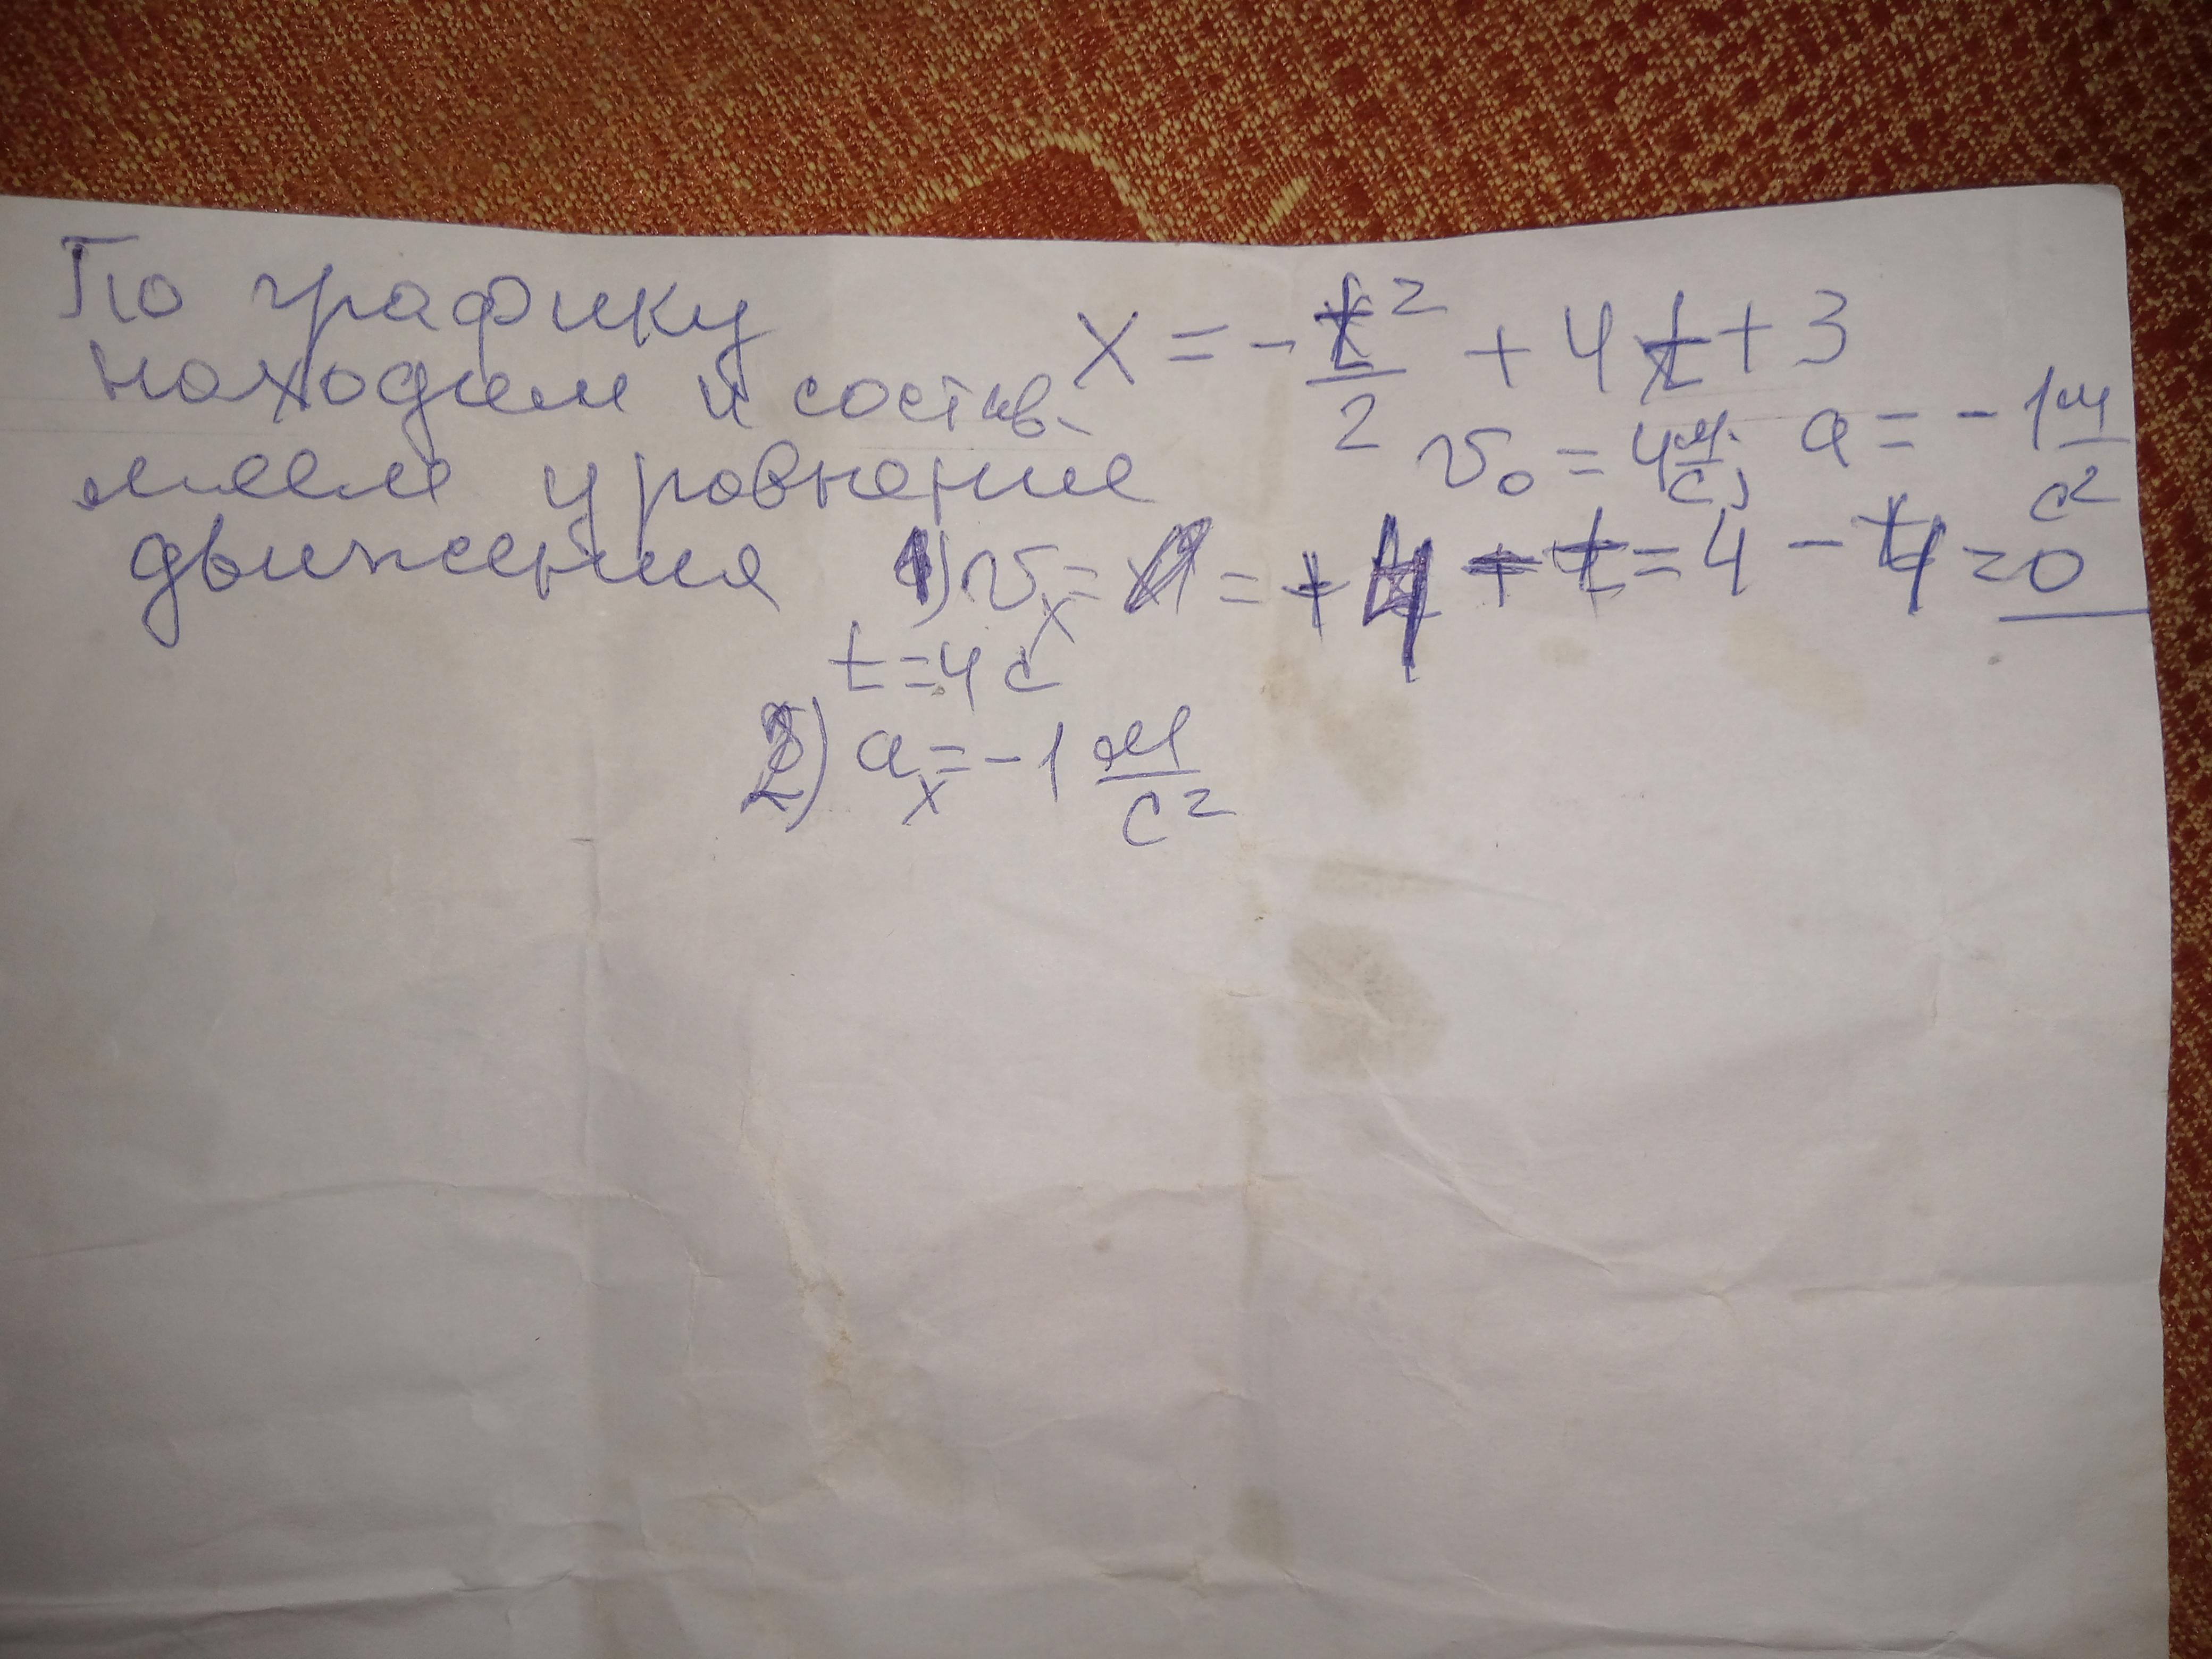 По графику
находим и состав-
ляем уравнение
движения
x = - t²/2 + 4t + 3
v₀ = 4 м/с, a = - 1 м/с²
1) vₓ = = + 4 - t = 4 - 4 = 0
t = 4 c
2) aₓ = - 1 м/с²